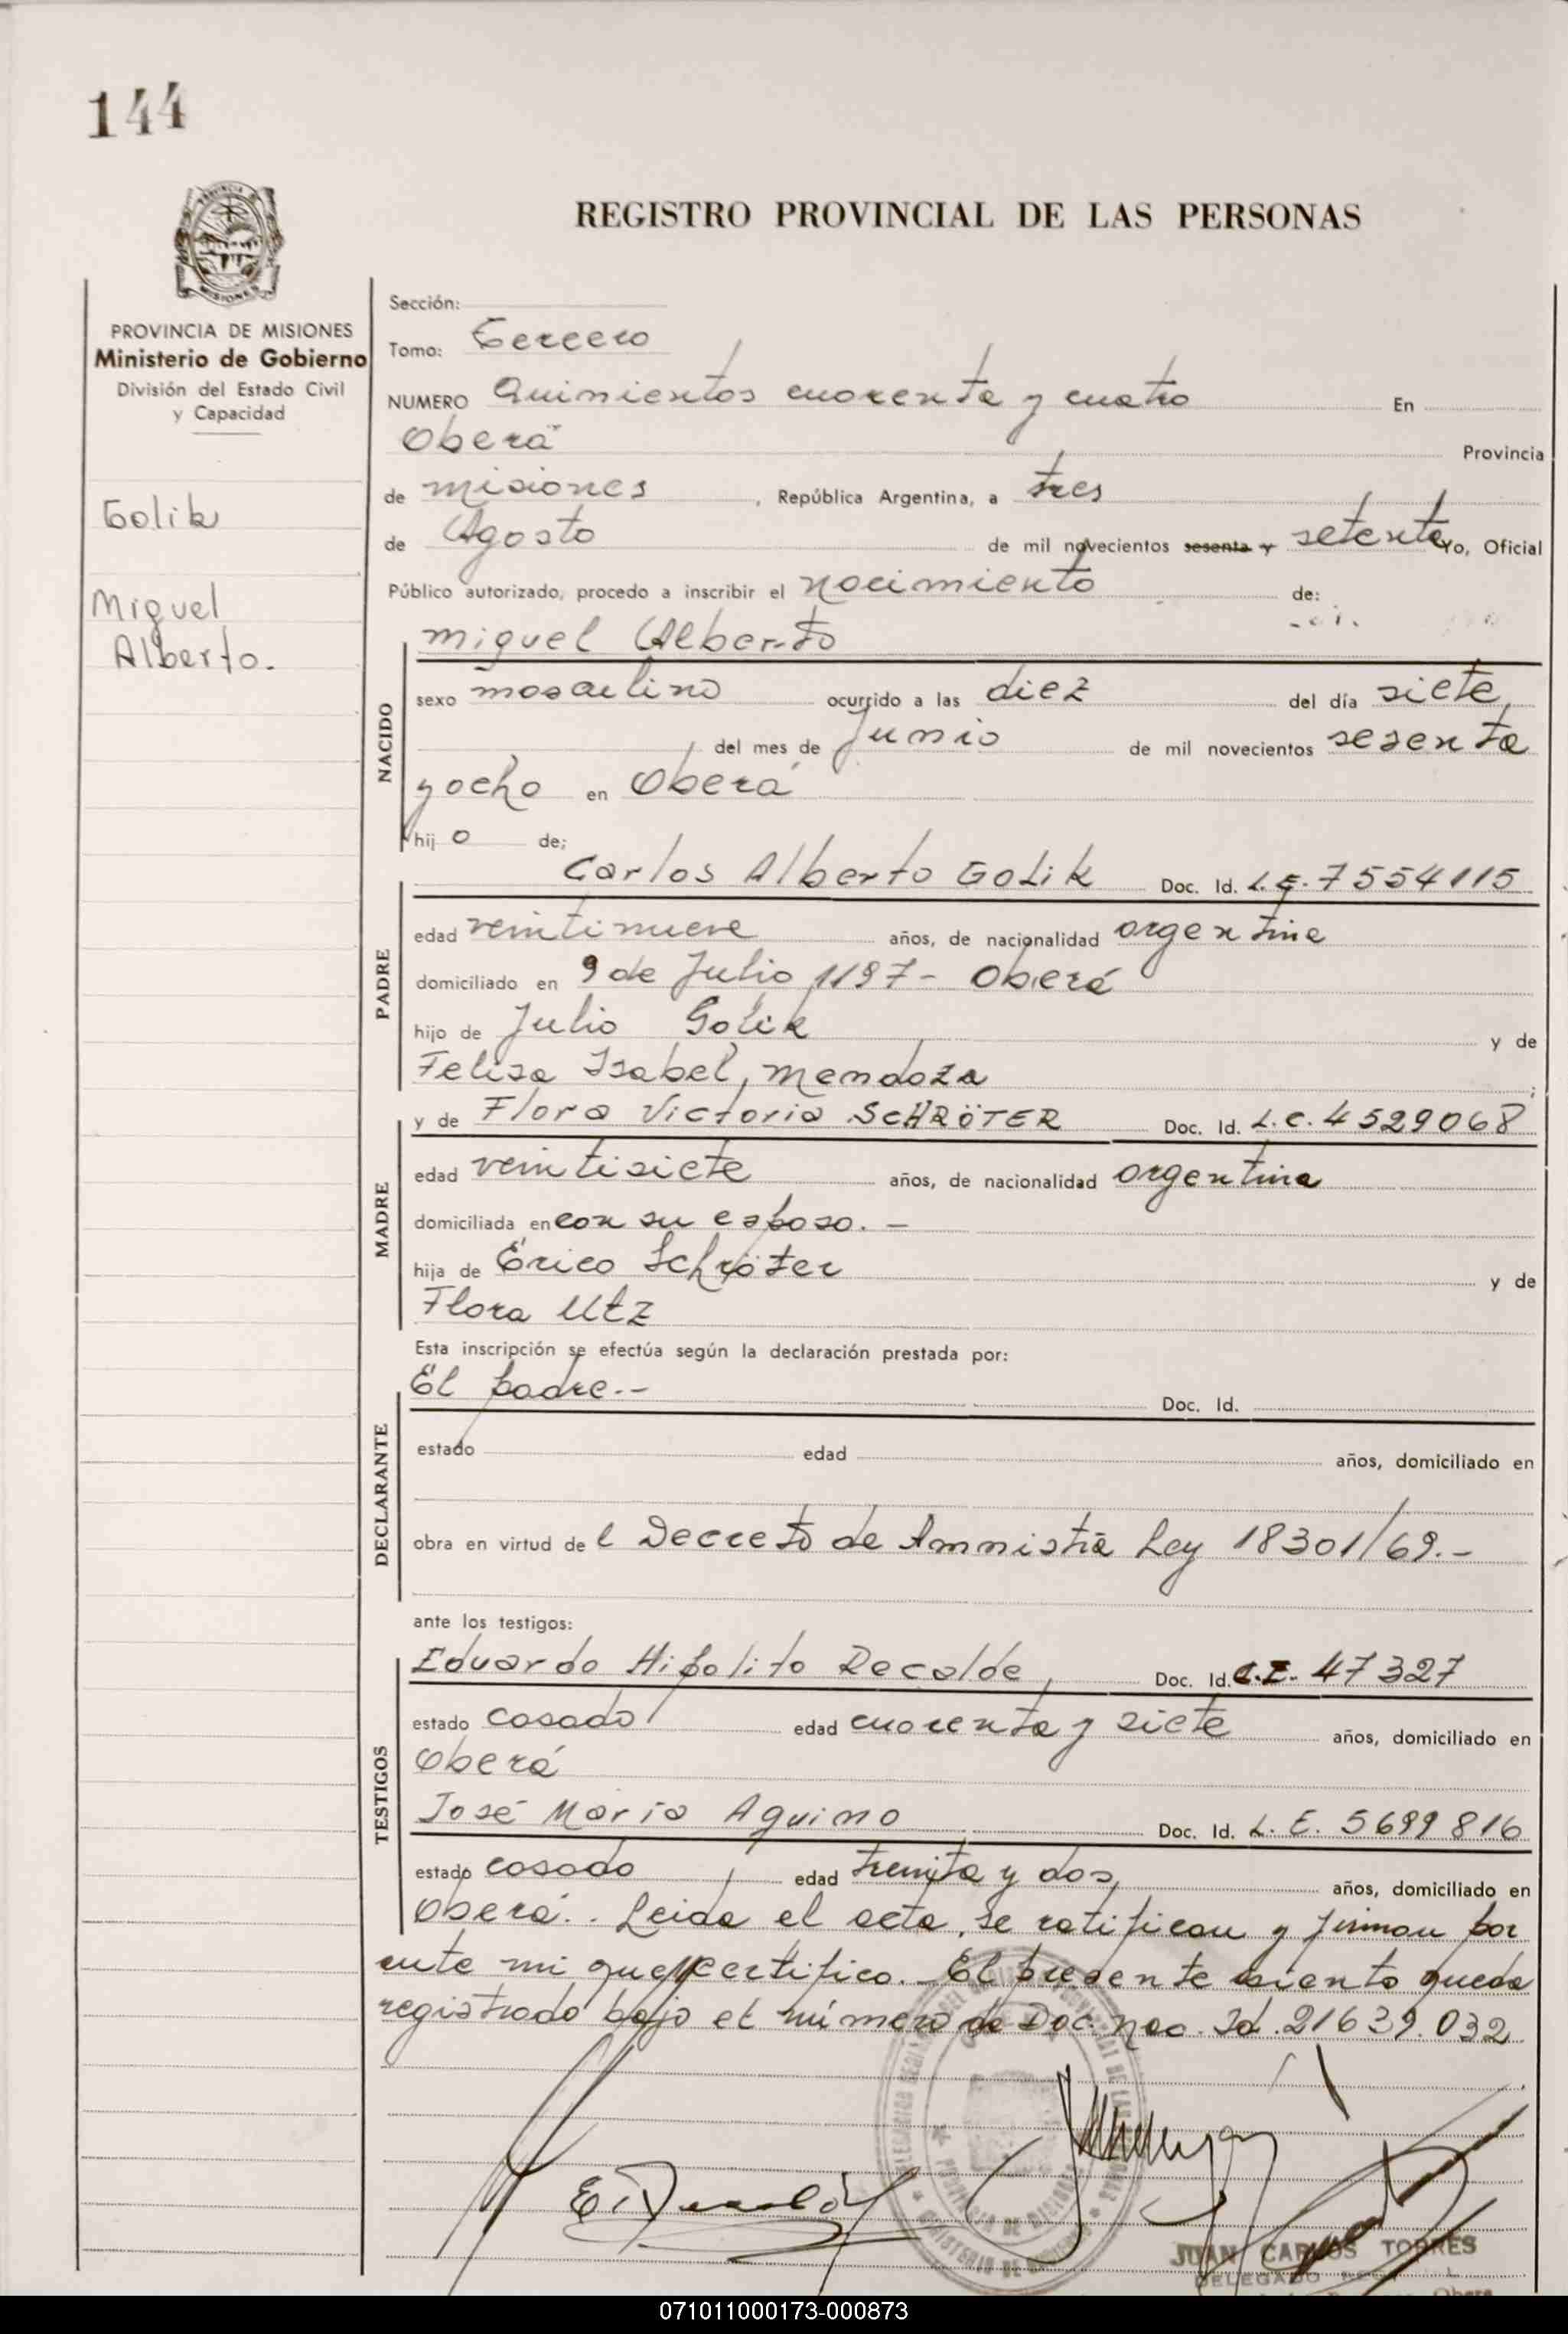 144
REGISTRO PROVINCIAL DE LAS PERSONAS
PROVINCIA DE MISIONES
Ministerio de Gobierno
División del Estado Civil
y Capacidad
Golik
Miguel
Alberto.
Sección:
Tomo: Tercero
NUMERO Quinientos cuarenta y cuatro En
Oberá Provincia
de misiones, República Argentina, a tres
de Agosto de mil novecientos sesenta y setenta Yo, Oficial
Público autorizado, procedo a inscribir el nacimiento de:
miguel Alberto
NACIDO
sexo masculino ocurrido a las diez del día siete,
del mes de Junio de mil novecientos sesenta
y ocho en Oberá
hij o de;
Carlos Alberto Golik Doc. Id. L.E. 7554115
PADRE
edad veintinueve años, de nacionalidad argentina
domiciliado en 9 de Julio 1197- Oberá
hijo de Julio Golik y de
Felisa Isabel, mendoza;
y de Flora Victoria SCHRÖTER Doc. Id. L.C. 4529068
MADRE
edad veintisiete años, de nacionalidad argentina
domiciliada en con su esposo.-
hija de Erico Schröter y de
Flora Utz
Esta inscripción se efectúa según la declaración prestada por:
El padre.-- Doc. Id.
DECLARANTE
estado edad años, domiciliado en
obra en virtud de l Decreto de Amnistia Ley 18301/69.-
ante los testigos:
Eduardo Hipolito Recalde, Doc. Id. C.I. 47327
TESTIGOS
estado casado edad cuarenta y siete años, domiciliado en
Oberá
José Maria Aquino Doc. Id. L.E. 5699816
estado casado edad treinta y dos, años, domiciliado en
Oberá.. Leida el acta, se ratifican y firman por
ante mi que certifico.- El presente asiento queda
registrado bajo el número de Doc. nac. Id. 21639.032
JUAN CARLOS TORRES
DELEGADO
071011000173-000873